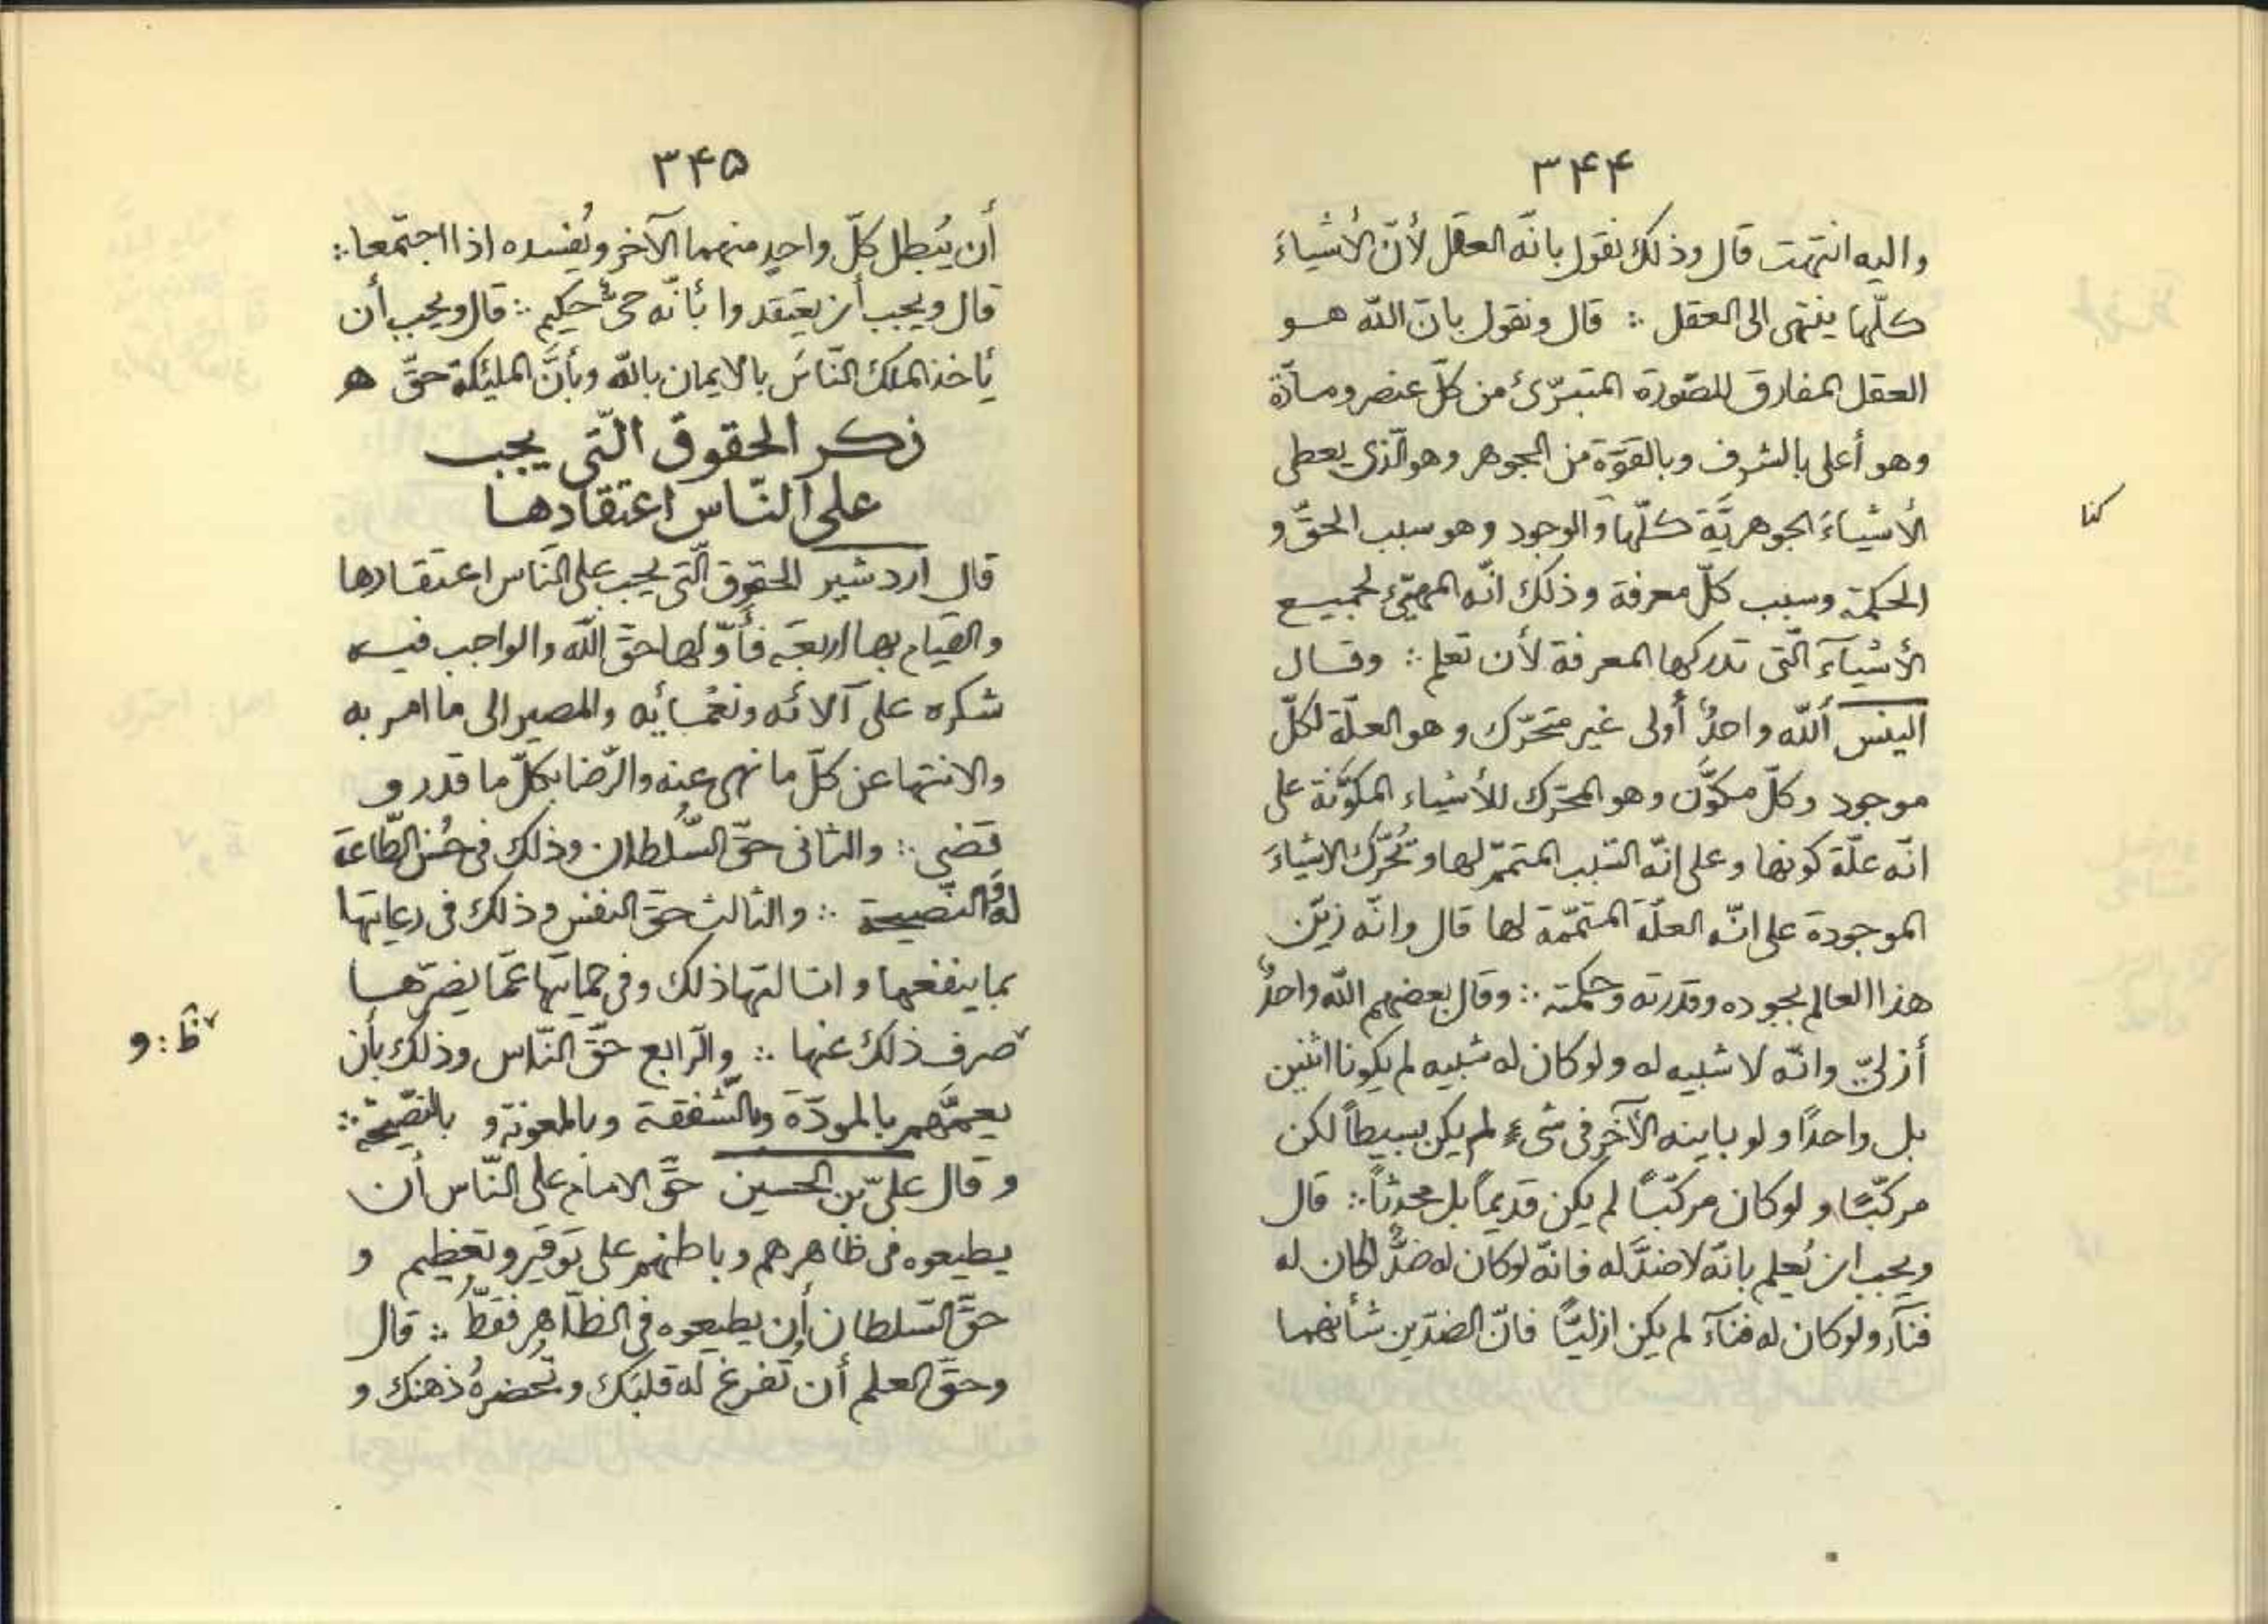 ۳۴۴
واليه انتهت قال وذلك نقول بانّه العقل لأنّ الأشياءَ
كلّها ينتهى الى العقل ∴ قال ونقول بانّ اللّه هو
العقل المفارق للصّورة المتبرّئ من كلّ عنصر ومادّة
وهو أعلى بالشرف وبالقوّة من الجوهر وهو الّذى يعطى
الأشياءَ الجوهريَّة كلّها والوجود وهو سبب الحقّ و
كذا
الحكمة وسبب كلّ معرفة وذلك انّه المهيّئ لجميع
الأشيآءَ الّتى تدركها المعرفة لأن تعلم ∴ وقال
الينس أللّه واحدٌ أولى غير متحرّك وهو العلّة لكلّ
موجود وكلّ مكوَّن وهو المحرّك للأشياء المكوَّنة على
انّه علّة كونها وعلى انّه السّبب المتمّم لها وتُحرّك الاشياءَ
الموجودة على انّه العلّة المتمّمة لها قال وانّه زيّن
هذا العالم بجوده وقدرته وحكمته ∴ وقال بعضهم اللّه واحدٌ
أزلىّ وانّه لا شبيه له ولو كان له شبيه لم يكونا اثنين
بل واحدًا ولو باينه الآخر فى شىءٍ لم يكن بسيطاً لكن
مركّبًا ولو كان مركّبًا لم يكن قديماً بل محدثاً ∴ قال
ويجب ان نُعلم بانّه لا ضدَّ له فانّه لو كان له ضدٌّ لكان له
فنآء ولو كان له فنآء لم يكن ازليًّا فانّ الضدّين شأنهما
۳۴۵
أن يُبطل كلّ واحدٍ منهما الآخر ويُفسده اذا اجتمعا ∴
قال ويجب أن يعتقدوا بأنّه حىٌّ حكيم ∴ قال ويجب أن
يأخذ الملك النّاسَ بالايمان باللّه وبأنَّ الملئكة حقّ ه
ذكر الحقوق الّتى يجب
على النّاس اعتقادها
قال اردشير الحقوق الّتى يجب على النّاس اعتقادها
والقيام بها اربعة فأوّلها حقّ اللّه والواجب فيه
شكره على آلائه ونعمائه والمصير الى ما امر به
والانتها عن كلّ ما نهى عنه والرّضا بكلّ ما قدر و
قضى ∴ والثانى حقّ السُّلطان وذلك فى حُسن الطّاعة
له والنّصيحة ∴ والثالث حقّ النفس وذلك فى رعايتها
بما ينفعها و انالتها ذلك وفى حمايتها عمّا يضرّها
˅صرف ذلك عنها ∴ والرّابع حقّ النّاس وذلك بأن
˅ظ : و
يعمَّهم بالمودّة وبالشّفقة وبالمعونة و بالنّصيحة ∴
و قال علىّ بن الحسين حقّ الامام على النّاس أن
يطيعوه فى ظاهرهم وباطنهم على توقير وتعظيم و
حقّ السّلطان أن يطيعوه فى الظّاهر فقطّ ∴ قال
وحقّ العلم أن تُفرغ له قلبَك وتُحضرهُ ذهنك و